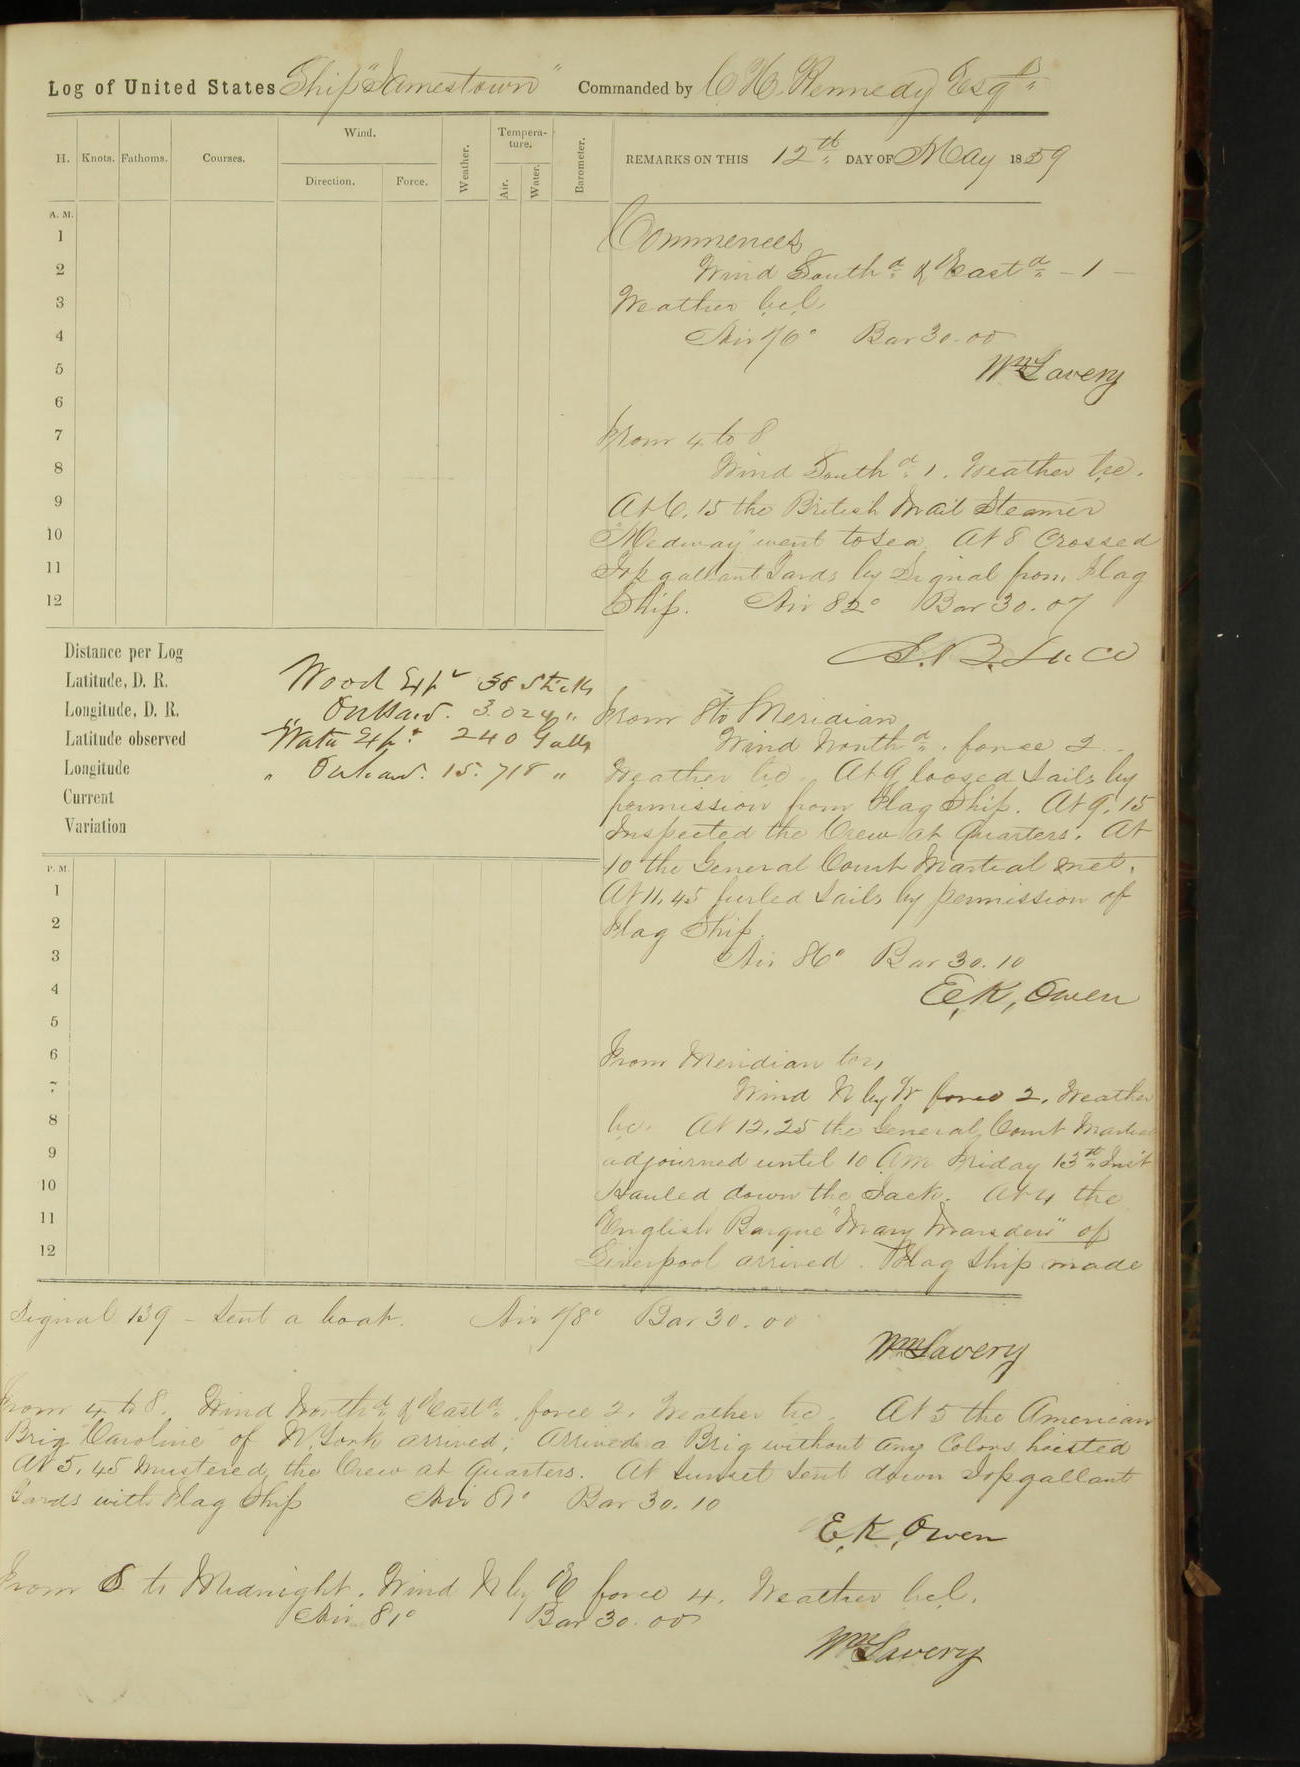 Log of United States Ship "Jamestown" Commanded by C H Kennedy Esqr
H. Knots. Fathoms. Courses. Wind. Direction. Force. Weather. Tempera-ture. Air. Water. Barometer. REMARKS ON THIS 12th DAY OF May 1859
A. M.
1
2
3
4
5
6
7
8
9
10
11
12
Commences
Wind Southd & Eastd - 1 -
Weather b.c.l.
Air 76° Bar 30.00
Wm Lavery
From 4 to 8
Wind Southd 1. Weather b.c.
At 6.15 the British Mail Steamer
"Medway" went to sea. At 8 Crossed
Topgallant Yards by Signal from Flag
Ship. Air 82° Bar 30.07
S. B. Luce
Distance per Log
Latitude, D. R.
Longitude, D. R.
Latitude observed
Longitude
Current
Variation
Wood Expr 38 Sticks
" On Hand. 3.024 "
Water Expr 240 Galls
" On hand. 15.718 "
From 8 to Meridian
Wind Northd. force 2.
Weather b.c. At 9 loosed Sails by
permission from Flag Ship. At 9.15
Inspected the Crew at Quarters. At
10 the General Court Martial met.
At 11.45 furled Sails by permission of
Flag Ship.
Air 86° Bar 30.10
E. K. Owen
P. M.
1
2
3
4
5
6
7
8
9
10
11
12
From Meridian to 4
Wind N by W force 2. Weather
b.c. At 12.25 the General Court Martial
adjourned until 10 A.M. Friday 13th Inst
Hauled down the Jack. At 4 the
English Barque "Mary Marsden" of
Liverpool arrived. Flag Ship made
Signal 139 - Sent a boat. Air 78° Bar 30.00
Wm Lavery
From 4 to 8. Wind Northd & Eastd. force 2. Weather b.c. At 5 the American
Brig "Caroline" of N. York arrived; Arrived a Brig without any Colors hoisted
At 5.45 mustered the Crew at Quarters. At Sunset Sent down Topgallant
Yards with Flag Ship Air 81° Bar 30.10
E. K. Owen
From 8 to Midnight. Wind N by E force 4. Weather b.c.l.
Air 81° Bar 30.00
Wm Lavery